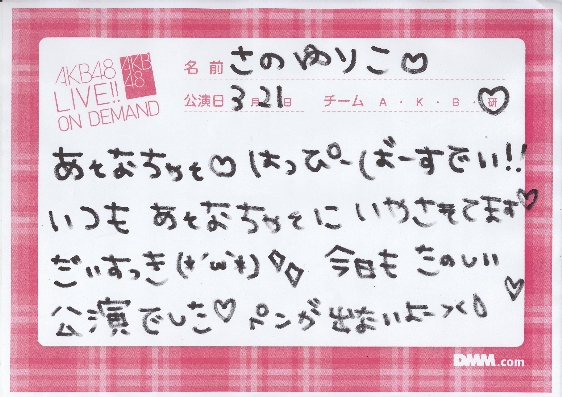 AKB48
LIVE!!
ON DEMAND
AKB
48
名前 さのゆりこ♡
公演日 3月21日 チーム A・K・B・研
あそなちゃそ♡ はっぴーばーすでい!!
いつも あそなちゃそに いやさせてます♡
だいすっき(*´ω`*)◇◇ 今日も たのしい
公演でした♡ ペンが出ないよーつく
DMM.com